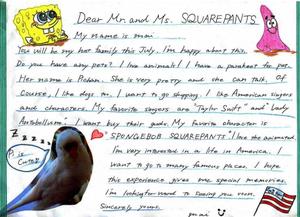 Dear Mr. and Ms. SQUAREPANTS
My name is mai
You will be my host family this July. I'm happy about this.
Do you have any pets? I like animals! I have a parakeet for pet.
Her name is She is very pretty and she can talk. Of
course, I like dogs too. I want to go shopping. I like American singers
and characters. My favorite singers are "Taylor Swift" and "Lady
Antebellum". I want buy their goods. My favorite character is
"SPONGEBOB SQUAREPANTS". I like the animated.
I'm very interested in a life in America. I
want to go to many famous places. I hope
this experience gives me special memories.
I'm looking forward to seeing you soon.
Sincerely yours,
mai
Z Z Z Z
is
Cute!!